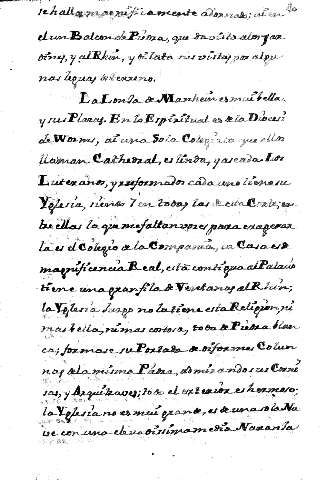 se halla magnificamente adornado; ai en
el un Balcon de Piedra, que da vista a los Jar
dines, y al Rhin, y dilata sus vistas por algu
nas leguas de terreno.
La Lonja de Manhein es mui bella,
y sus Plazas. En lo Espiritual es de la Diocesi
de Worms, ai una sola Colegiata que ellos
llaman Cathedral, es linda, y aseada. Los
Luteranos, y reformados cada uno tiene su
Yglesia, siendo 7 en todas las de esta Corte; en
tre ellas la que me faltan voces para exagerar
la es el Colegio de la Compania, su Casa es de
magnificencia Real, està contigua al Palacio
tiene una gran fila de Ventanas al Rhin;
la Yglesia Juzgo no la tiene esta Religion, ni
mas bella, ni mas costosa, toda de Piedra blan
ca; formase su Portada de disformes Colum
nas de la misma Piedra, dominando sus Corni
sas, y Arquitraves; todo el exterior es hermoso;
la Yglesia no es mui grande, es de una sola Na
ve con una elevadissima media Naranja